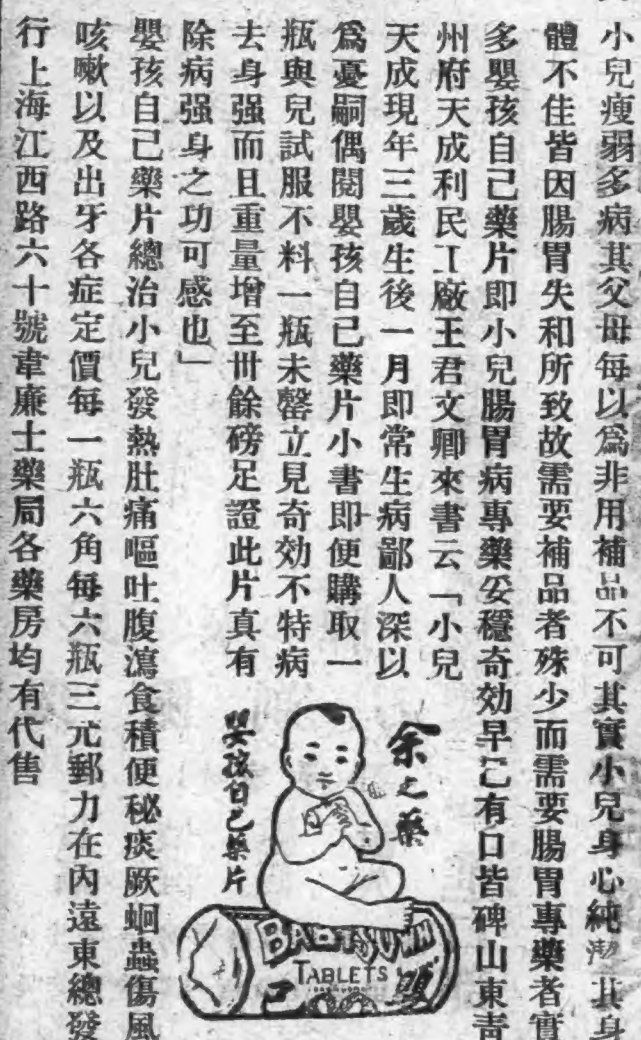 小兒瘦弱多病其父母每以爲非用補品不可其實小兒身心純潔其身
體不佳皆因腸胃失和所致故需要補品者殊少而需要腸胃專藥者實
多嬰孩自己藥片即小兒腸胃病專藥妥穩奇効早已有口皆碑山東靑
州府天成利民工廠王君文卿來書云「小兒
天成現年三歲生後一月即常生病鄙人深以
爲憂嗣偶閱嬰孩自己藥片小書即便購取一
瓶與兒試服不料一瓶未罄立見奇効不特病
去身强而且重量增至卅餘磅足證此片真有
除病强身之功可感也」
余之藥
嬰孩自己藥片
BABY'S OWN
TABLETS
己
嬰孩自己藥片總治小兒發熱肚痛嘔吐腹瀉食積便秘痰厥蛔蟲傷風
咳嗽以及出牙各症定價每一瓶六角每六瓶三元郵力在內遠東總發
行上海江西路六十號韋廉士藥局各藥房均有代售